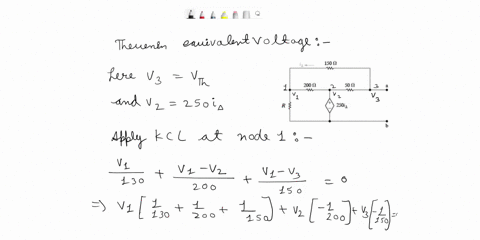 Thevenin equivalent Voltage:-
here V3 = VTh
and V2 = 250 iΔ
150 Ω
1 200 Ω 2 50 Ω 3
V1 V2 V3
R 250iΔ
b
Apply KCL at node 1:-
V1/130 + (V1-V2)/200 + (V1-V3)/150 = 0
⇒ V1[1/130 + 1/200 + 1/150] + V2[-1/200] + V3[-1/150] =